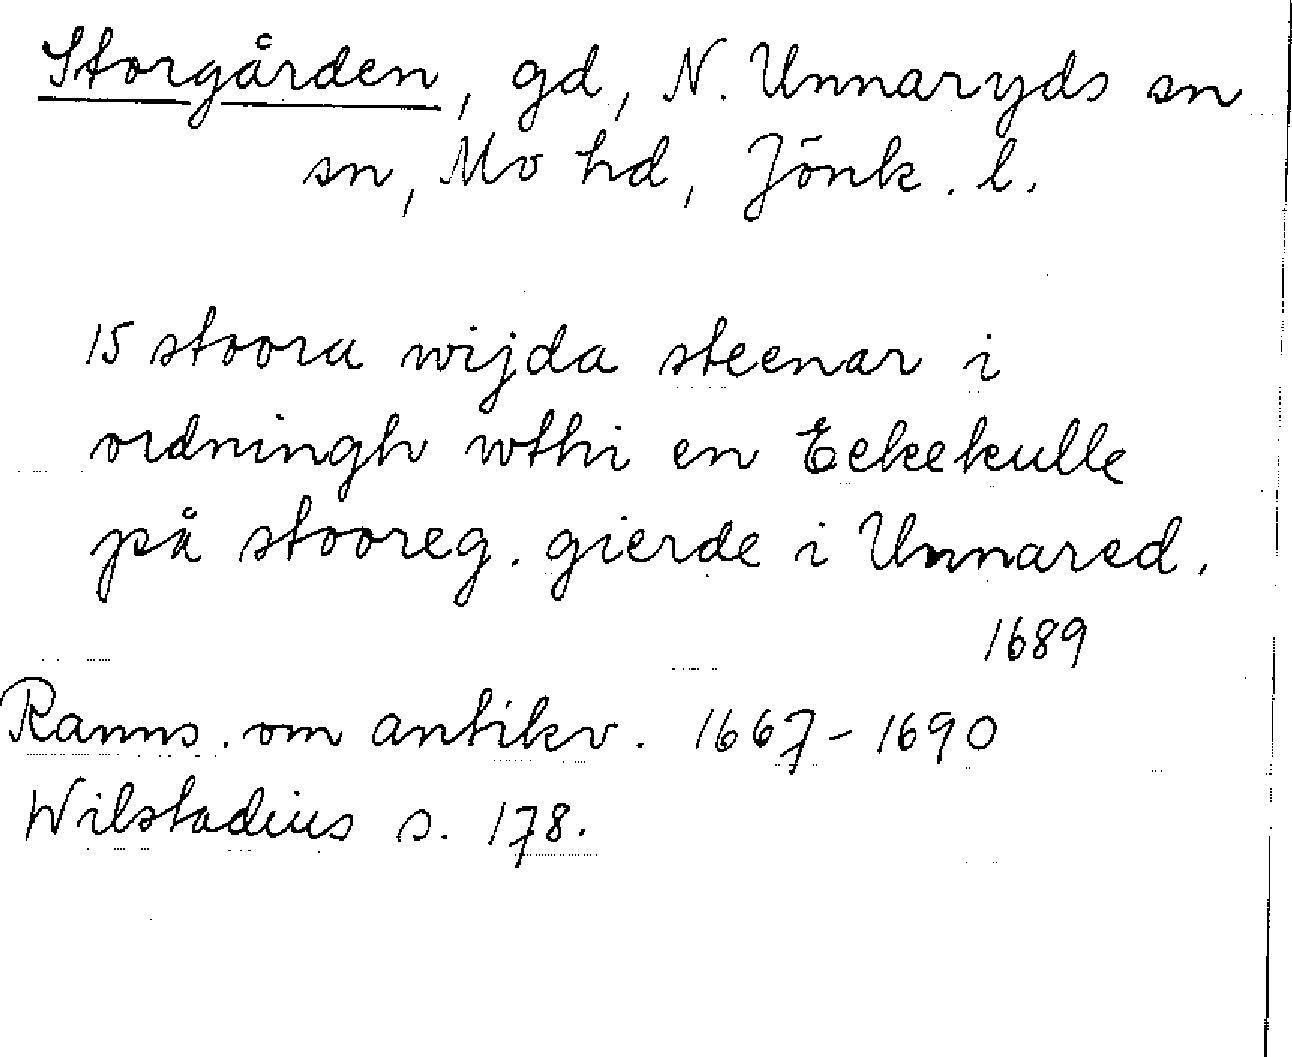 Storgården, gd, N. Unnaryds sn
sn, Mo hd, Jönk. l.
15 stoora wijda steenar i
ordningh wthi en Eekekulle
på stooreg. gierde i Unnared.
1689
Ranns. om antikv. 1667-1690
Wilstadius s. 178.